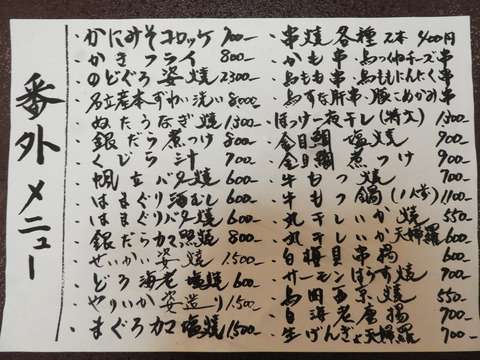 番外メニュー
・かにみそコロッケ 700-
・かきフライ 800-
・のどぐろ姿焼 2300-
・名立産本ずわい洗い 8000-
・ぬたうなぎ焼 1300-
・銀だら煮つけ 800-
・くじら汁 700-
・帆立バター焼 600-
・はまぐり酒むし 600-
・はまぐりバター焼 600-
・銀だらカマ照焼 800-
・せいかい姿焼 1500-
・どろ海老塩焼 600-
・やりいか姿造り 1500-
・まぐろカマ塩焼 1500-
・串焼各種 2本 400円
・かも串・鳥つくねチーズ串
・鳥もも串・鳥ももにんにく串
・鳥すな肝串・豚こめかみ串
・ほっけ一夜干し(特大) 1300-
・金目鯛塩焼 900-
・金目鯛煮つけ 900-
・牛もつ焼 700-
・牛もつ鍋(1人前) 1100-
・丸干しいか焼 550-
・丸干しいか天婦羅 600-
・白梅貝串揚 600-
・サーモンはらす焼 700-
・鳥西京焼 550-
・白海老唐揚 700-
・生げんぎょ天婦羅 700-